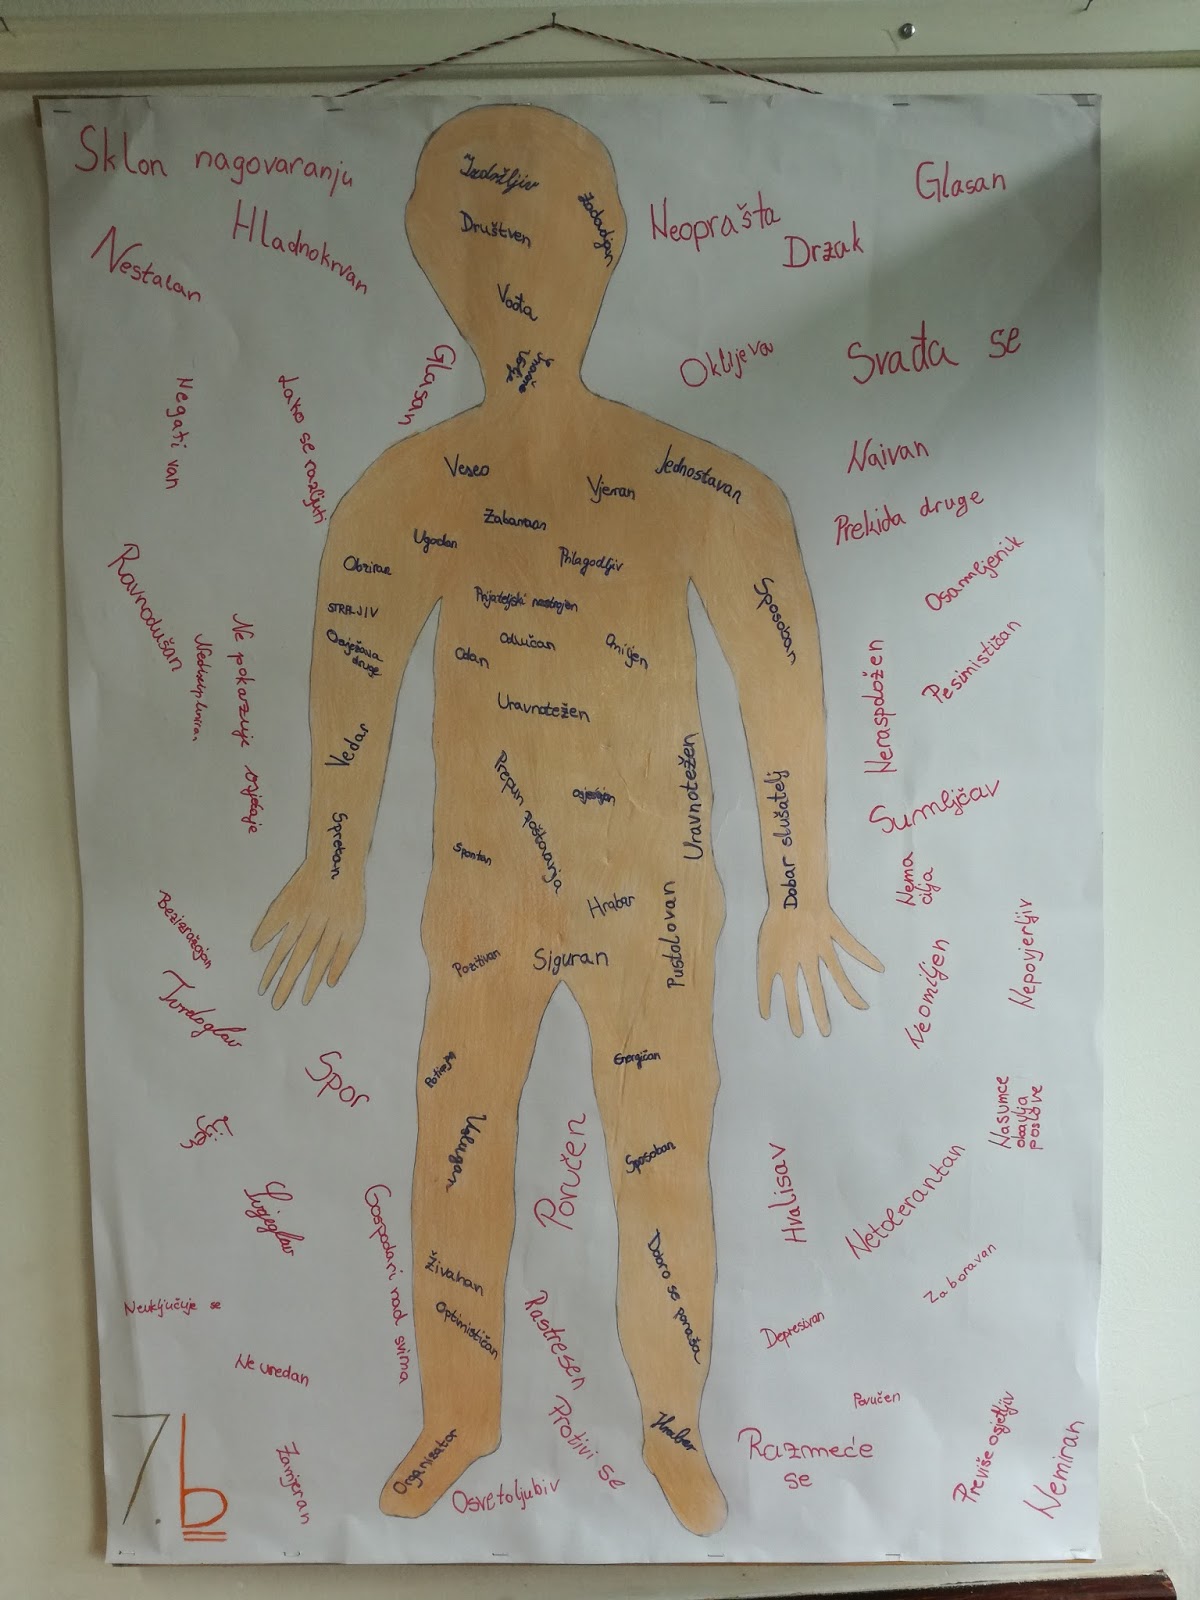 Sklon nagovaranju
Hladnokrvan
Nestalan
Neoprašta
Drzak
Glasan
Društven
Vođa
Glasan
Oklijeva
Svađa se
Negativan
Lako se razljuti
Naivan
Prekida druge
Osamljenik
Pesimističan
Neraspoložen
Sumljičav
Nema cilja
Nepovjerljiv
Neomiljen
Nasumce
obavlja
poslove
Veseo
Vjeran
Jednostavan
Zabavan
Ugodan
Obziran
Prilagodljiv
STRPLJIV
Prijateljski nastrojen
Osvježava
druge
Odlučan
Omiljen
Odan
Sposoban
Uravnotežen
Vedar
Prepun poštovanja
Uravnotežen
Dobar slušatelj
Spretan
Spontan
Hrabar
Pustolovan
Siguran
Pozitivan
Ravnodušan
Nediscipliniran
Ne pokazuje osjećaje
Bezizražajan
Tvrdoglav
Spor
Energičan
Sposoban
Uslužan
Povučen
Hvalisav
Netolerantan
Zaboravan
Svojeglav
Gospodari nad svima
Živahan
Optimističan
Dobro se ponaša
Rastresen
Depresivan
Neuključuje se
Ne uredan
Protivi se
Povučen
Razmeće
se
Previše osjetljiv
Nemiran
Organizator
Hrabar
Osvetoljubiv
Zamjeran
7.b